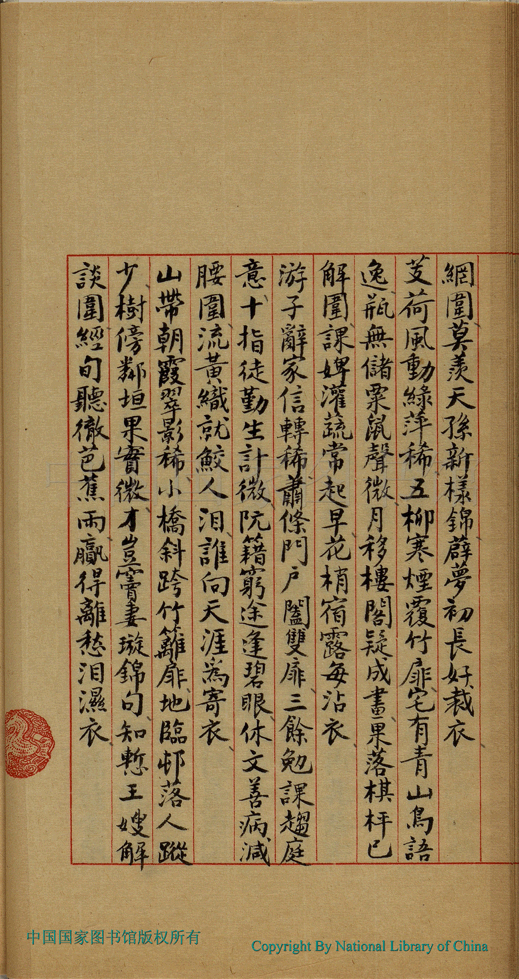 網圍莫羨天孫新樣錦薜夢初長好裁衣
芰荷風動綠萍稀五柳寒煙覆竹扉宅有青山鳥語
逸瓶無儲粟鼠聲微月移樓閣疑成畫果落棋枰已
解圍課婢灌蔬常起早花梢宿露每沾衣
游子辭家信轉稀蕭條門戶闔雙扉三餘勉課趨庭
意十指徒勤生計微阮籍窮途逢碧眼休文善病減
腰圍流黃織就鮫人泪誰向天涯為寄衣
山帶朝霞翠影稀小橋斜跨竹籬扉地臨邨落人蹤
少樹傍鄰垣果實微才豈竇妻璇錦句知慙王嫂解
談圍經旬聽徹芭蕉雨贏得離愁泪濕衣
中国国家图书馆版权所有
Copyright By National Library of China